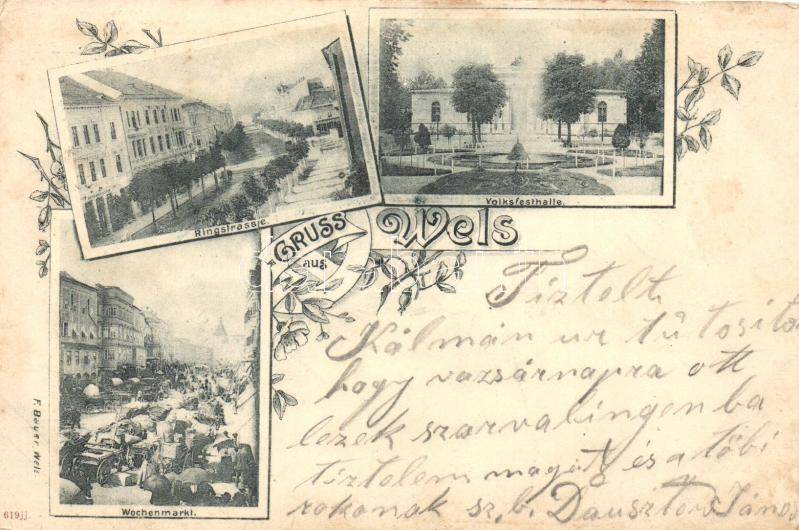 Ringstrasse.
Volksfesthalle.
GRUSS
aus
Wels
Wochenmarkt.
F. Beyer, Wels
619jj.
Tisztolt
Kálmán ur tú tosito
hogy vazsárnapra ott
lezek szarvalingen ba
tisztolem magát és a tőbi
rokonak sz. b. János